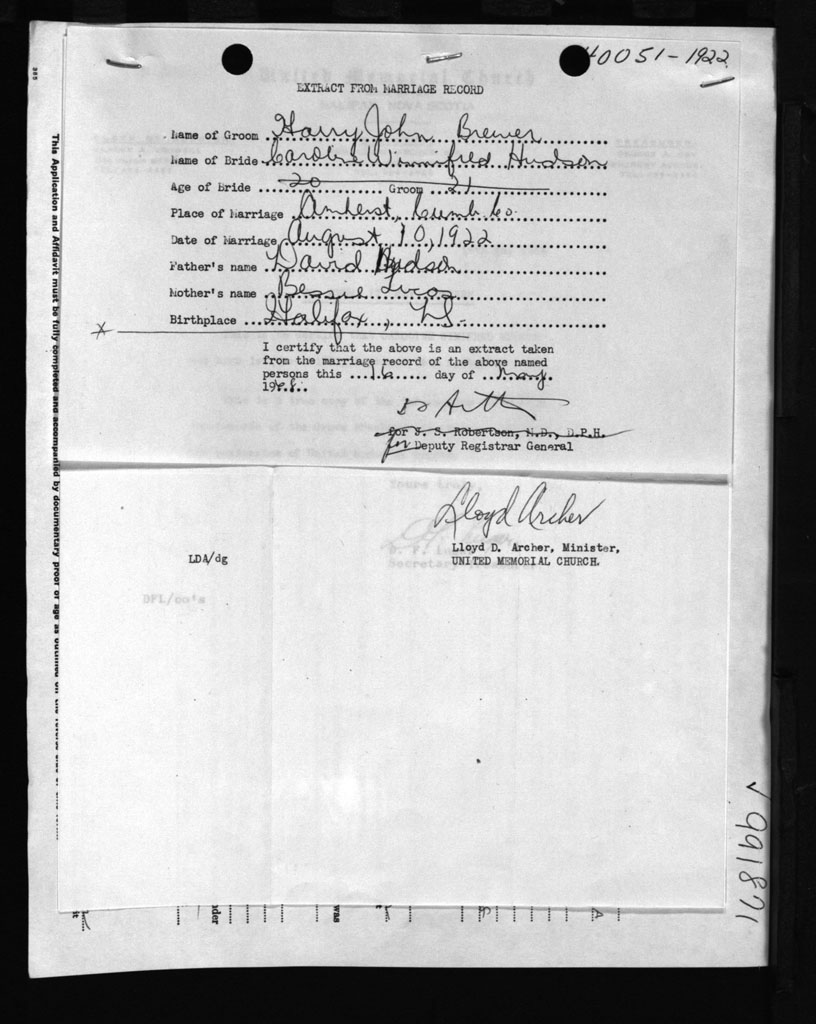 40051-1922
EXTRACT FROM MARRIAGE RECORD
Name of Groom Harry John Brewer
Name of Bride Caroline Winnifred Hudson
Age of Bride 20 Groom 21
Place of Marriage Amherst, Cumb Co.
Date of Marriage August 10, 1922
Father's name David Hudson
Mother's name Bessie Lucas
Birthplace Halifax, N.S.
I certify that the above is an extract taken
from the marriage record of the above named
persons this 16 day of
19
for S. S. Robertson, M.D., D.P.H.
for Deputy Registrar General
Lloyd Archer
Lloyd D. Archer, Minister,
UNITED MEMORIAL CHURCH.
LDA/dg
DFL/oo's
This Application and Affidavit must be fully completed and accompanied by documentary proof of age as outlined on the
√ 991871